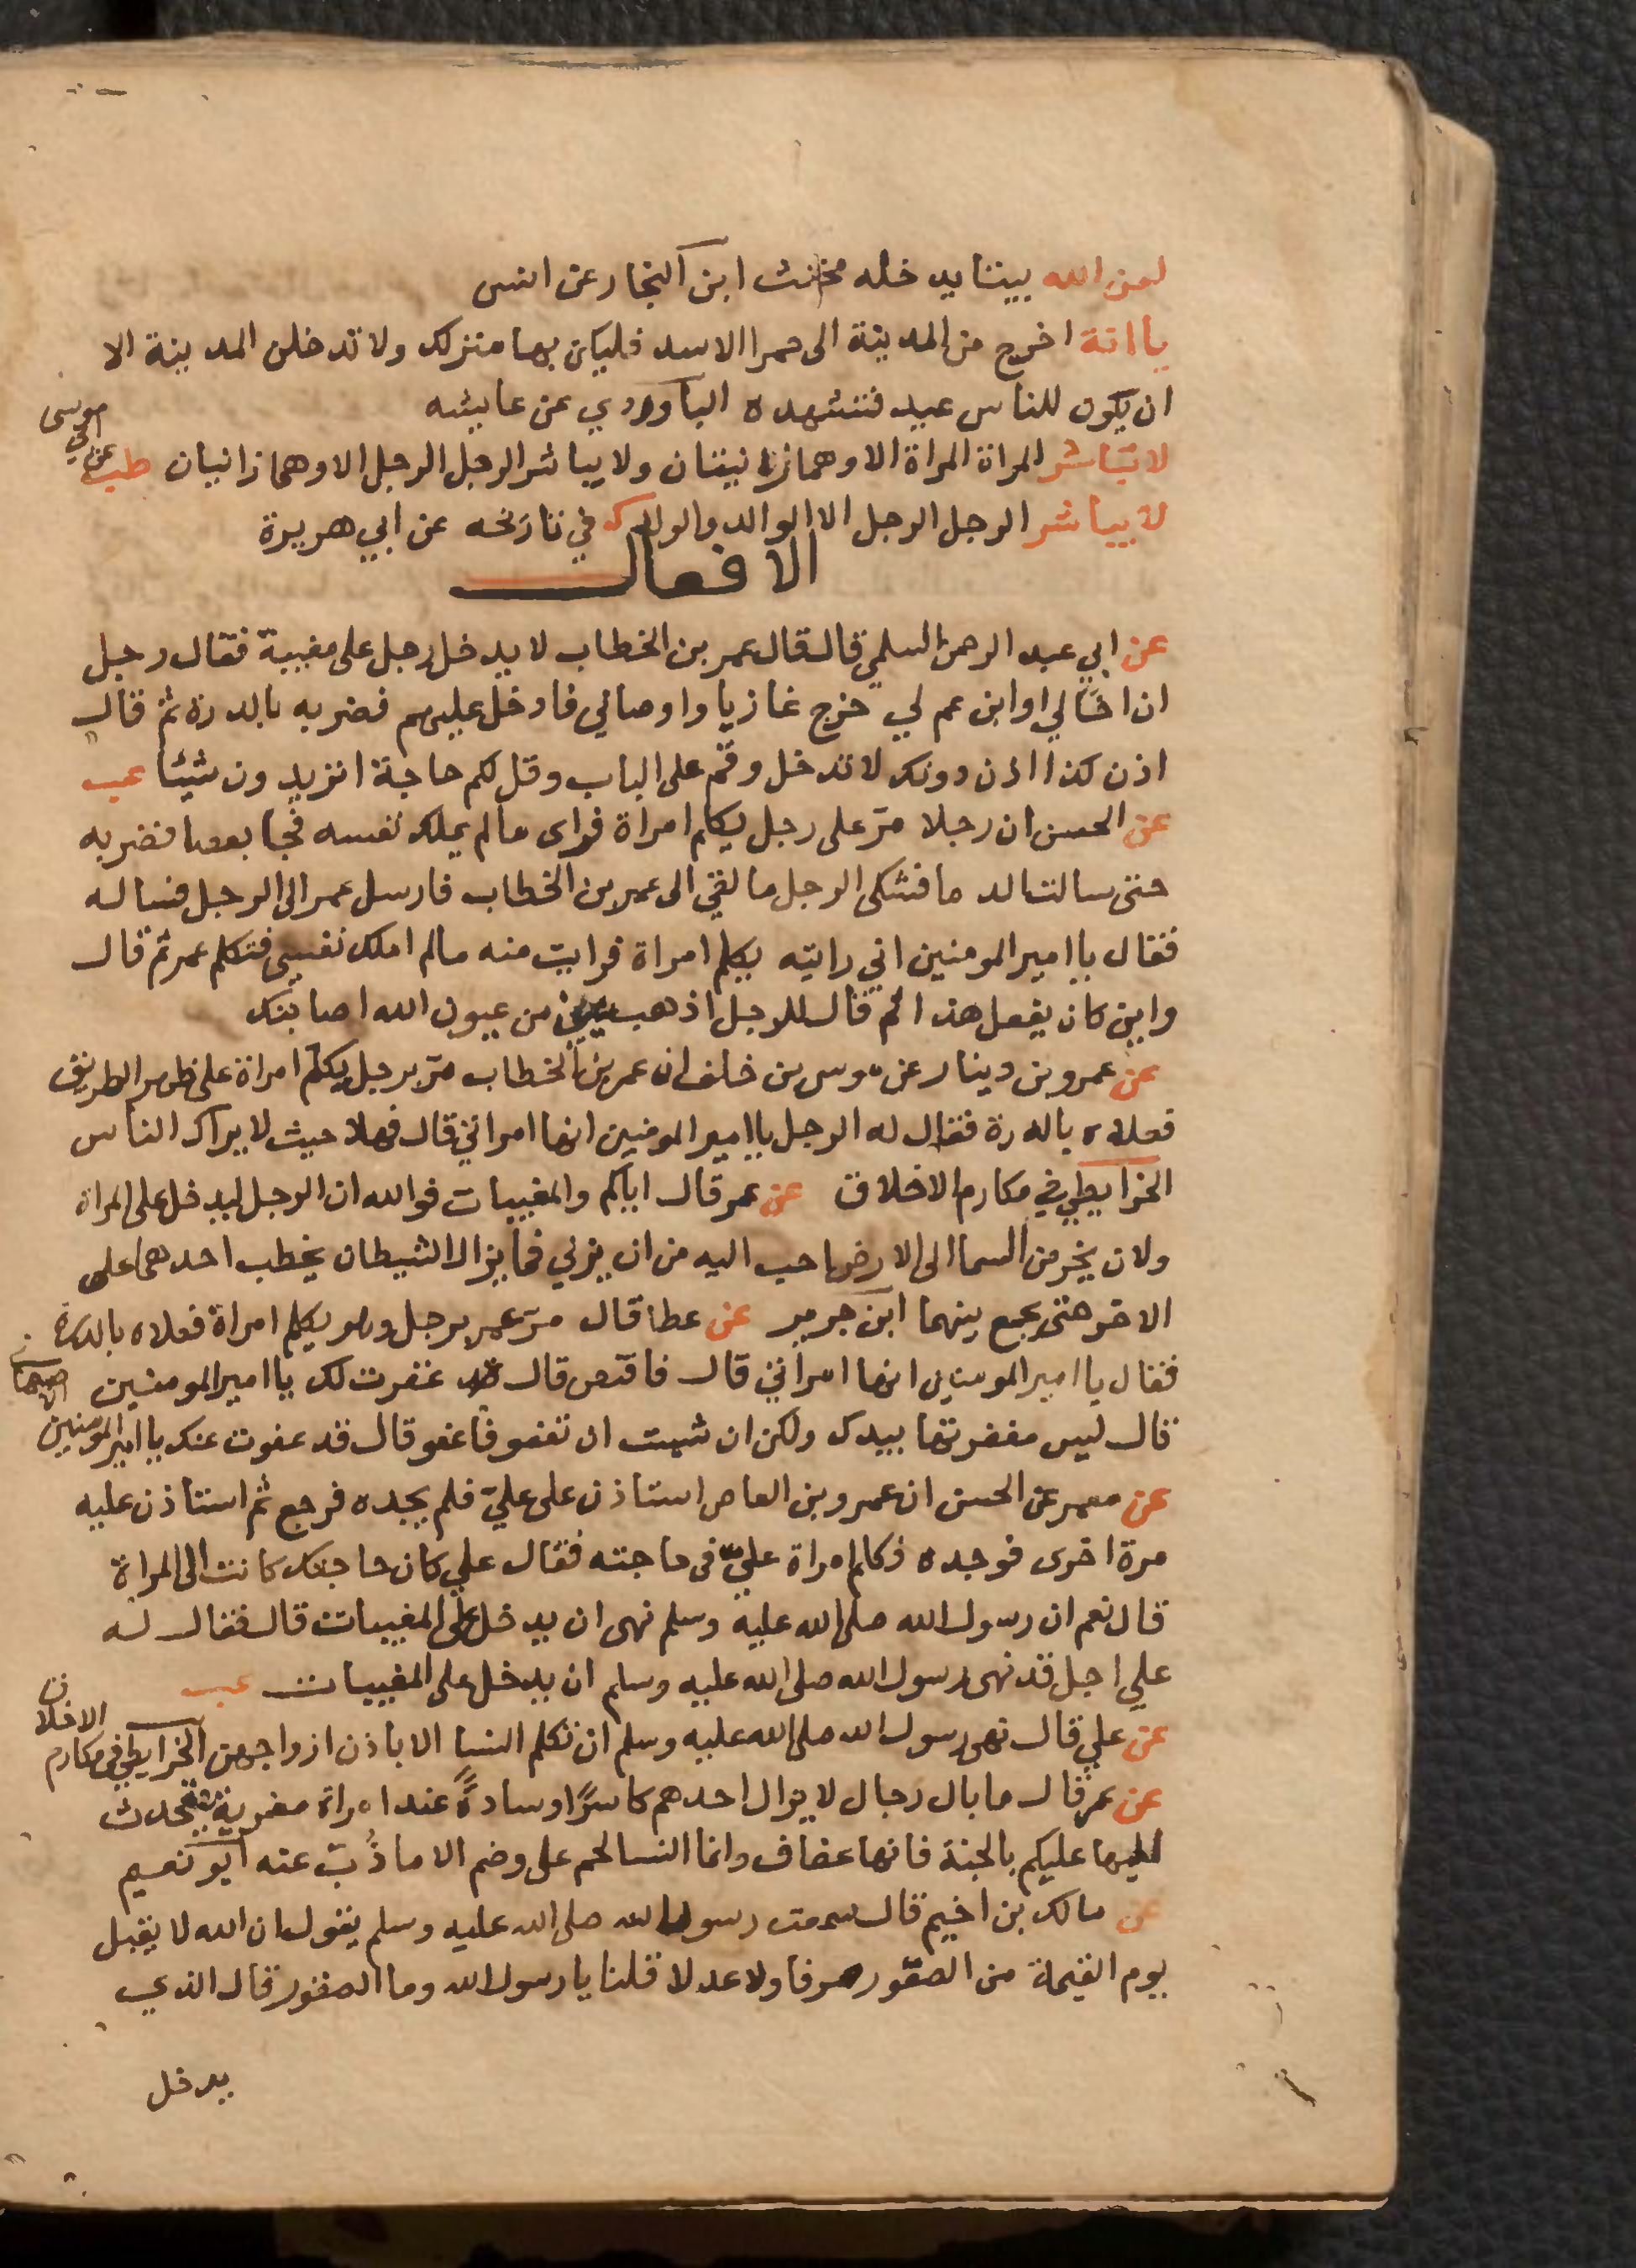 لعن الله بيتا يدخله مخنث ابن النجار عن انس
يا انة اخرج من المدينة الى حمرا الاسد فليكن بها منزلك ولا تدخلن المدينة الا
ان يكون للناس عيد فتشهده الباوردي عن عايشه
لا تباشر المراة المراة الا وهما زانيتان ولا يباشر الرجل الرجل الا وهما زانيان طب عن ابي موسى
لا يباشر الرجل الرجل الا الوالد والولد ك في تاريخه عن ابي هريرة
الافعال
عن ابي عبد الرحمن السلمي قال قال عمر بن الخطاب لا يدخل رجل على مغيبة فقال رجل
ان اخا لي او ابن عم لي خرج غازيا واوصاني فادخل عليهم فضربه بالدرة ثم قال
اذن كذا اذن دونك لا تدخل وقم على الباب وقل لكم حاجة اتريدون شيئا عب
عن الحسن ان رجلا مرّ على رجل يكلم امراة فراى مالم يملك نفسه فجا بعصا فضربه
حتى سالت الدما فشكى الرجل ما لقي الى عمر بن الخطاب فارسل عمر الى الرجل فساله
فقال يا امير المومنين اني رايته يكلم امراة فرايت منه مالم املك نفسي فتكلم عمر ثم قال
واين كان يفعل هذا ثم قال للرجل اذهب عين من عيون الله اصابتك
عن عمرو بن دينار عن موسى بن خلف ان عمر بن الخطاب مرّ برجل يكلم امراة على ظهر الطريق
فعلاه بالدرة فقال له الرجل يا امير المومنين انها امراتي قال فهلا حيث لا يراك الناس
الخرايطي في مكارم الاخلاق عن عمر قال اياكم والمغيبات فوالله ان الرجل ليدخل على المراة
ولان يخر من السما الى الارض احب اليه من ان يزني فما يزال الشيطان يخطب احدهما على
الاخر حتى يجمع بينهما ابن جرير عن عطا قال مرّ عمر برجل وهو يكلم امراة فعلاه بالدرة
فقال يا امير المومنين انها امراتي قال فاقتص قال قد غفرت لك يا امير المومنين الاصبهاني
قال ليس مغفرتها بيدك ولكن ان شيت ان تعفو فاعفو قال قد عفوت عنك يا امير المومنين
عن معمر عن الحسن ان عمرو بن العاص استاذن على عليّ فلم يجده فرجع ثم استاذن عليه
مرة اخرى فوجده فكلم امراة عليّ في حاجته فقال علي كان حاجتك كانت الى المراة
قال نعم ان رسول الله صلى الله عليه وسلم نهى ان يدخل على المغيبات قال فقال له
علي اجل قد نهى رسول الله صلى الله عليه وسلم ان يدخل على المغيبات عب
عن علي قال نهى رسول الله صلى الله عليه وسلم ان نكلم النسا الا باذن ازواجهن الخرايطي في مكارم الاخلاق
عن عمر قال ما بال رجال لا يزال احدهم كاسرًا وسادةً عند امراة مغربة يتحدث
اليها عليكم بالجنبة فانها عفاف وانما النسا لحم على وضم الا ما ذُبّ عنه ابو نعيم
عن مالك بن اخيم قال سمعت رسول الله صلى الله عليه وسلم يقول ان الله لا يقبل
يوم القيمة من الصقور صرفا ولا عدلا قلنا يا رسول الله وما الصقور قال الذي
يدخل